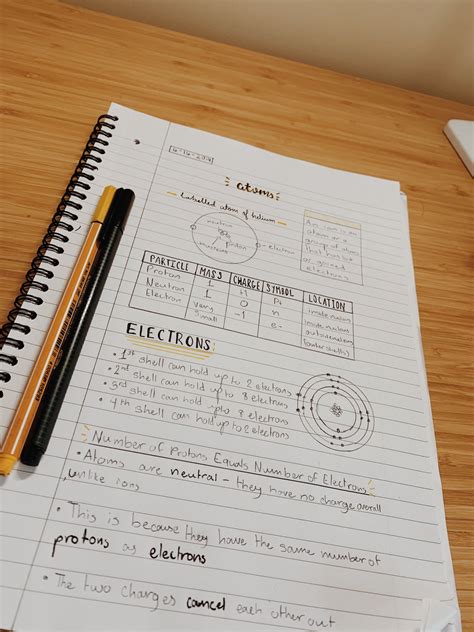 atoms
Labelled atom of helium
proton
electron
An ion is an
atom or a
group of atoms
that has lost
or gained
electrons
PARTICLE MASS CHARGE SYMBOL LOCATION
Proton 1 +1 P+ inside nucleus
Neutron 1 0 n inside nucleus
Electron very small -1 e- outside nucleus
(outer shells)
ELECTRONS
• 1st shell can hold up to 2 electrons
• 2nd shell can hold up to 8 electrons
• 3rd shell can hold up to 8 electrons
• 4th shell can hold up to 2 electrons
Number of Protons Equals Number of Electrons
• Atoms are neutral - they have no charge overall
unlike ions
• This is because they have the same number of
protons as electrons
• The two charges cancel each other out